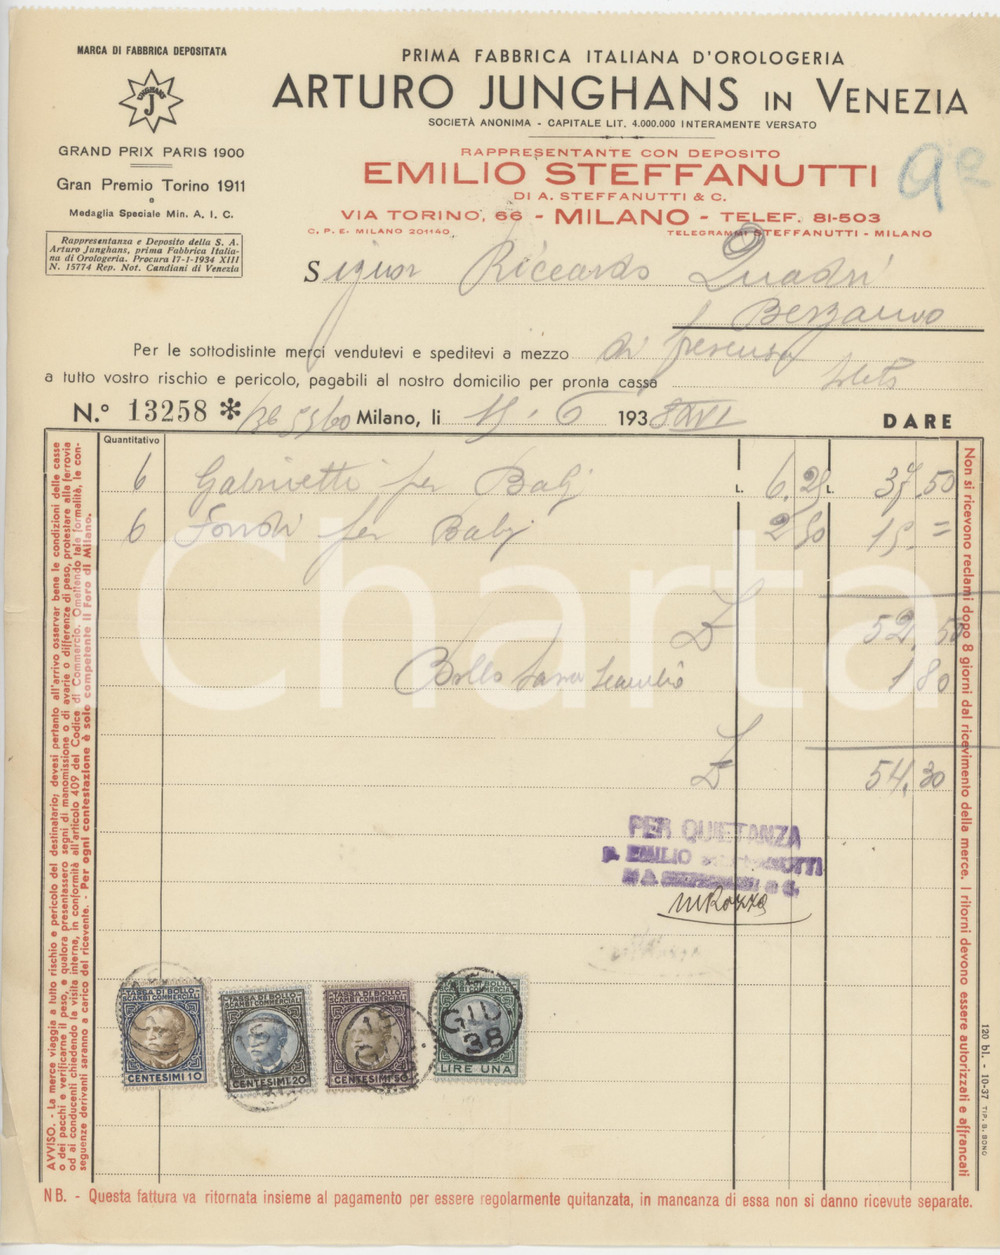 MARCA DI FABBRICA DEPOSITATA
JUNGHANS
J
GRAND PRIX PARIS 1900
Gran Premio Torino 1911
e
Medaglia Speciale Min. A. I. C.
Rappresentanza e Deposito della S. A.
Arturo Junghans, prima Fabbrica Italia-
na di Orologeria. Procura 17-1-1934 XIII
N. 15774 Rep. Not. Candiani di Venezia
PRIMA FABBRICA ITALIANA D'OROLOGERIA
ARTURO JUNGHANS IN VENEZIA
SOCIETÀ ANONIMA - CAPITALE LIT. 4.000.000 INTERAMENTE VERSATO
RAPPRESENTANTE CON DEPOSITO
EMILIO STEFFANUTTI
DI A. STEFFANUTTI & C.
VIA TORINO, 66 - MILANO - TELEF. 81-503
C. P. E. MILANO 201140
TELEGRAMMI STEFFANUTTI - MILANO
Signor Riccardo Quadri
Per le sottodistinte merci vendutevi e speditevi a mezzo di presenza
a tutto vostro rischio e pericolo, pagabili al nostro domicilio per pronta cassa
N.° 13258 * Milano, li 15 - 6 1938 XVI DARE
Quantitativo
6 Gabinetti per Baby L. 6.25 L. 37.50
6 Fondi per Baby 2 50 15. =
£ 52.50
Bollo tassa scambio 1 80
£ 54.30
PER QUIETANZA
p. EMILIO STEFFANUTTI
DI A. STEFFANUTTI & C.
TASSA DI BOLLO
SCAMBI COMMERCIALI
CENTESIMI 10
TASSA DI BOLLO
SCAMBI COMMERCIALI
CENTESIMI 20
TASSA DI BOLLO
SCAMBI COMMERCIALI
CENTESIMI 50
15
GIU
38
LIRE UNA
AVVISO. - La merce viaggia a tutto rischio e pericolo del destinatario; devesi pertanto all'arrivo osservar bene le condizioni delle casse
o dei pacchi e verificarne il peso, e qualora presentassero segni di manomissione o di avarie o differenze di peso, protestare alla ferrovia
od ai conducenti chiedendo la visita interna, in conformità all'articolo 409 del Codice di Commercio. Omettendo tale formalità, le con-
seguenze derivanti saranno a carico del ricevente. - Per ogni contestazione è solo competente il Foro di Milano.
Non si ricevono reclami dopo 8 giorni dal ricevimento della merce. I ritorni devono essere autorizzati e affrancati
120 bl. - 10-37 TIP. B. BONO
NB. - Questa fattura va ritornata insieme al pagamento per essere regolarmente quitanzata, in mancanza di essa non si danno ricevute separate.
Charta